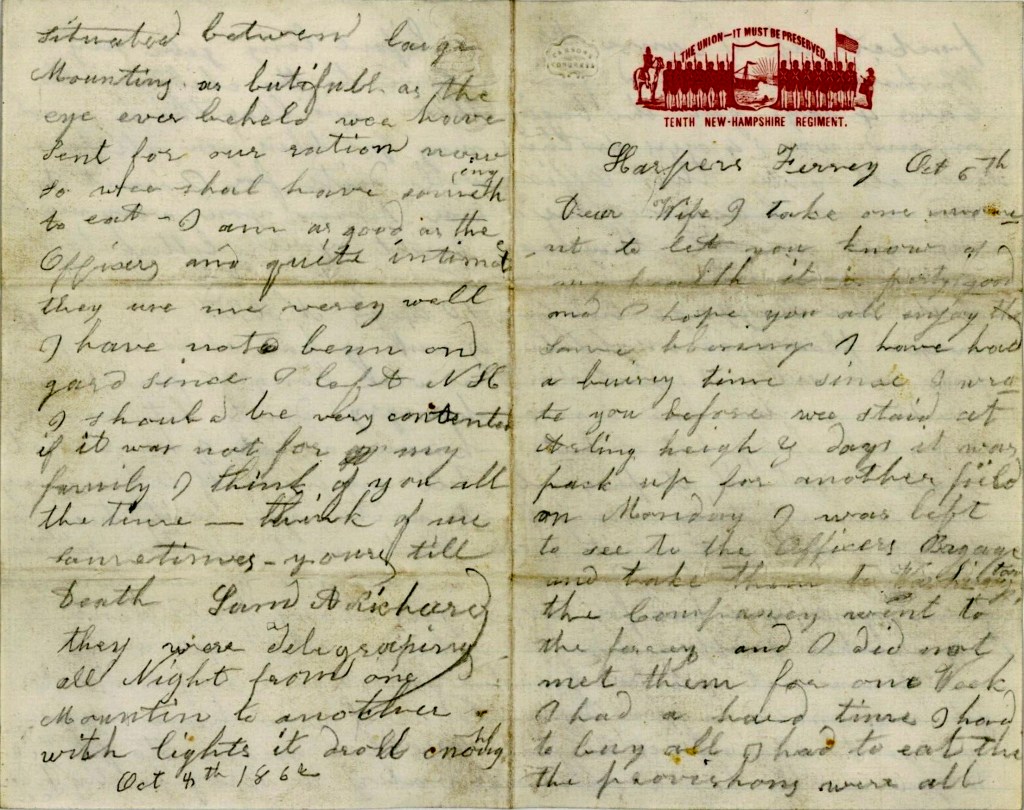 THE UNION—IT MUST BE PRESERVED
TENTH NEW-HAMPSHIRE REGIMENT.
Harpers Ferrey Oct 6th
Dear Wife I take one mome
nt to let you know of
my health it is perty good
and I hope you all enjoy the
same blesing I have had
a buisey time since I wro
to you before wee staid at
Arling heigh days it was
pack up for another field
on Monday I was left
to see to the Officers Bagage
and take them to Washington
the Compancy went to
the ferrey and I did not
met them for one Week
I had a hard time I had
to buy all I had to eat the
the provishons were all
situated between large
Mounting as butifull as the
eye ever beheld wee have
sent for our ration now
so wee shal have someth ing
to eat - I am as good as the
Offisers and quite intimat
they use me verey well
I have not benn on
gard since I left N H
I should be very contented
if it was not for my
family I think of you all
the time — think of me
sometimes - yours till
Death Sam A Richard
they were Teligrapfing
all Night from one
Mountin to another
with lights it droll enoughg
Oct 8th 1862